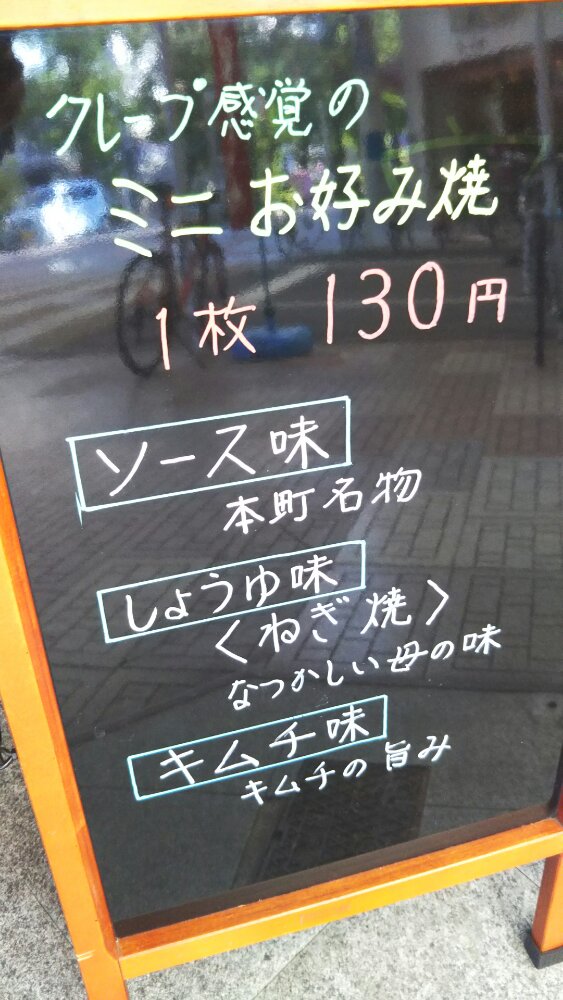 クレープ感覚の
ミニお好み焼
1枚 130円
ソース味
本町名物
しょうゆ味
〈ねぎ焼〉
なつかしい母の味
キムチ味
キムチの旨み